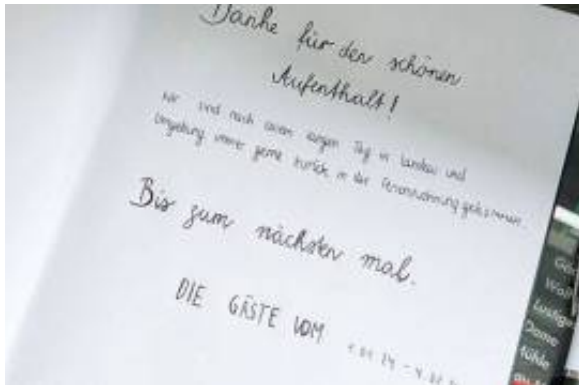 Danke für den schönen
Aufenthalt!
Wir sind nach einem langen Tag in Landau und
Umgebung immer gerne zurück in die Ferienwohnung gekommen.
Bis zum nächsten mal.
DIE GÄSTE VOM
Wolf
Lustige
Dame
Mühle